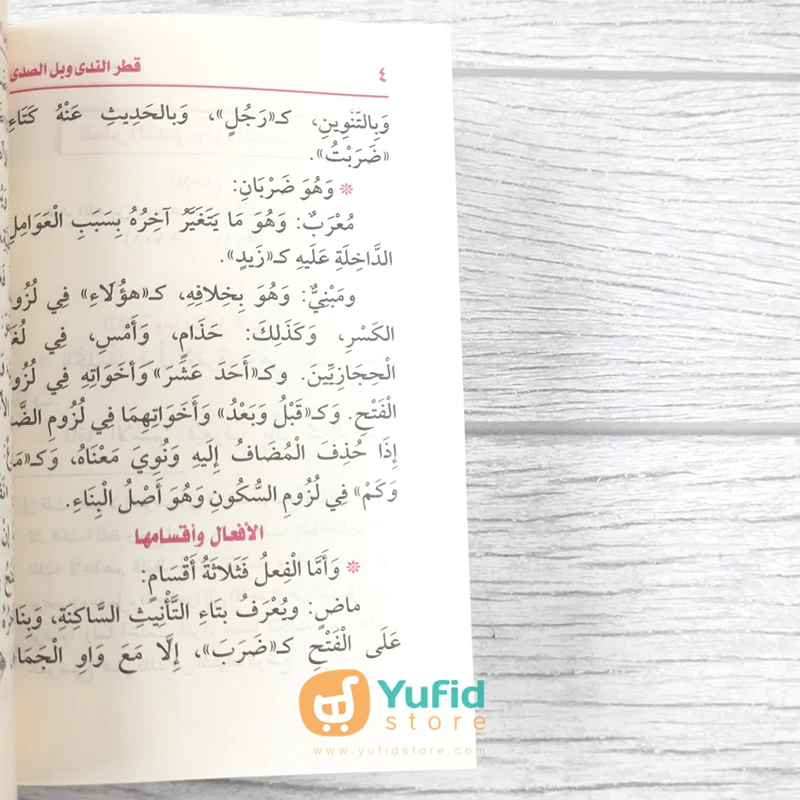 ٤
قطر الندى وبل الصدى
وَبِالتَّنْوِينِ، كـ«رَجُلٍ»، وَبالحَدِيثِ عَنْهُ كَتَاءِ
«ضَرَبْتُ».
❊ وَهُوَ ضَرْبَانِ:
مُعْرَبٌ: وَهُوَ مَا يَتَغَيَّرُ آخِرُهُ بِسَبَبِ الْعَوَامِلِ
الدَّاخِلَةِ عَلَيهِ كـ«زَيدٍ».
ومَبْنِيٌّ: وَهُوَ بِخِلافِهِ، كـ«هؤُلَاءِ» فِي
الكَسْرِ، وَكَذَلِكَ: حَذَامِ، وَأَمْسِ، فِي
الْحِجَازِيِّينَ. وكـ«أَحَدَ عَشَرَ» وأخَوَاتِهِ فِي
الْفَتْحِ. وَكـ«قَبْلُ وَبَعْدُ» وَأَخَوَاتِهِمَا فِي لُزُومِ
إذَا حُذِفَ الْمُضَافُ إلَيهِ وَنُوِيَ مَعْنَاهُ،
وَكَمْ» فِي لُزُومِ السُّكُونِ وَهُوَ أَصْلُ الْبِنَاءِ.
الأفعال وأقسامها
❊ وَأَمَّا الْفِعلُ فَثَلاثَةُ أَقْسَامٍ:
ماضٍ: ويُعْرَفُ بتَاءِ التَّأْنِيثِ السَّاكِنَةِ،
عَلَى الْفَتْحِ كـ«ضَرَبَ»، إلَّا مَعَ وَاوِ
Yufid
store
www.yufidstore.com